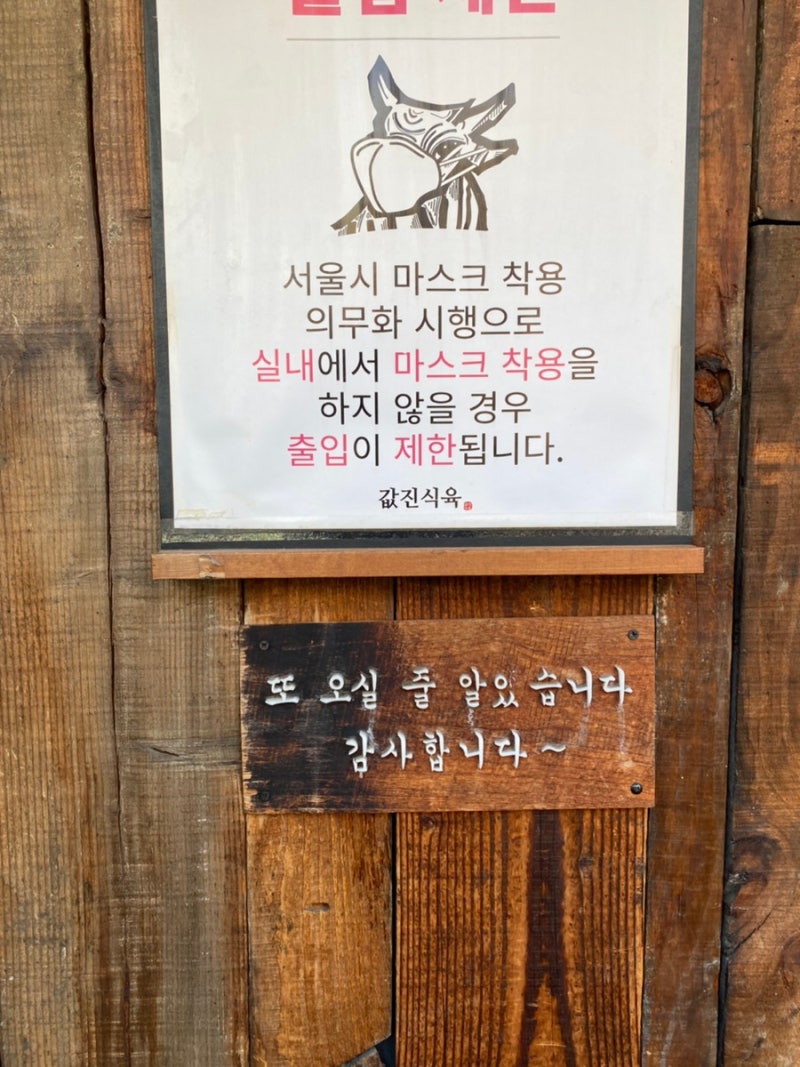 서울시 마스크 착용
의무화 시행으로
실내에서 마스크 착용을
하지 않을 경우
출입이 제한됩니다.
값진식육
또 오실 줄 알았습니다
감사합니다~